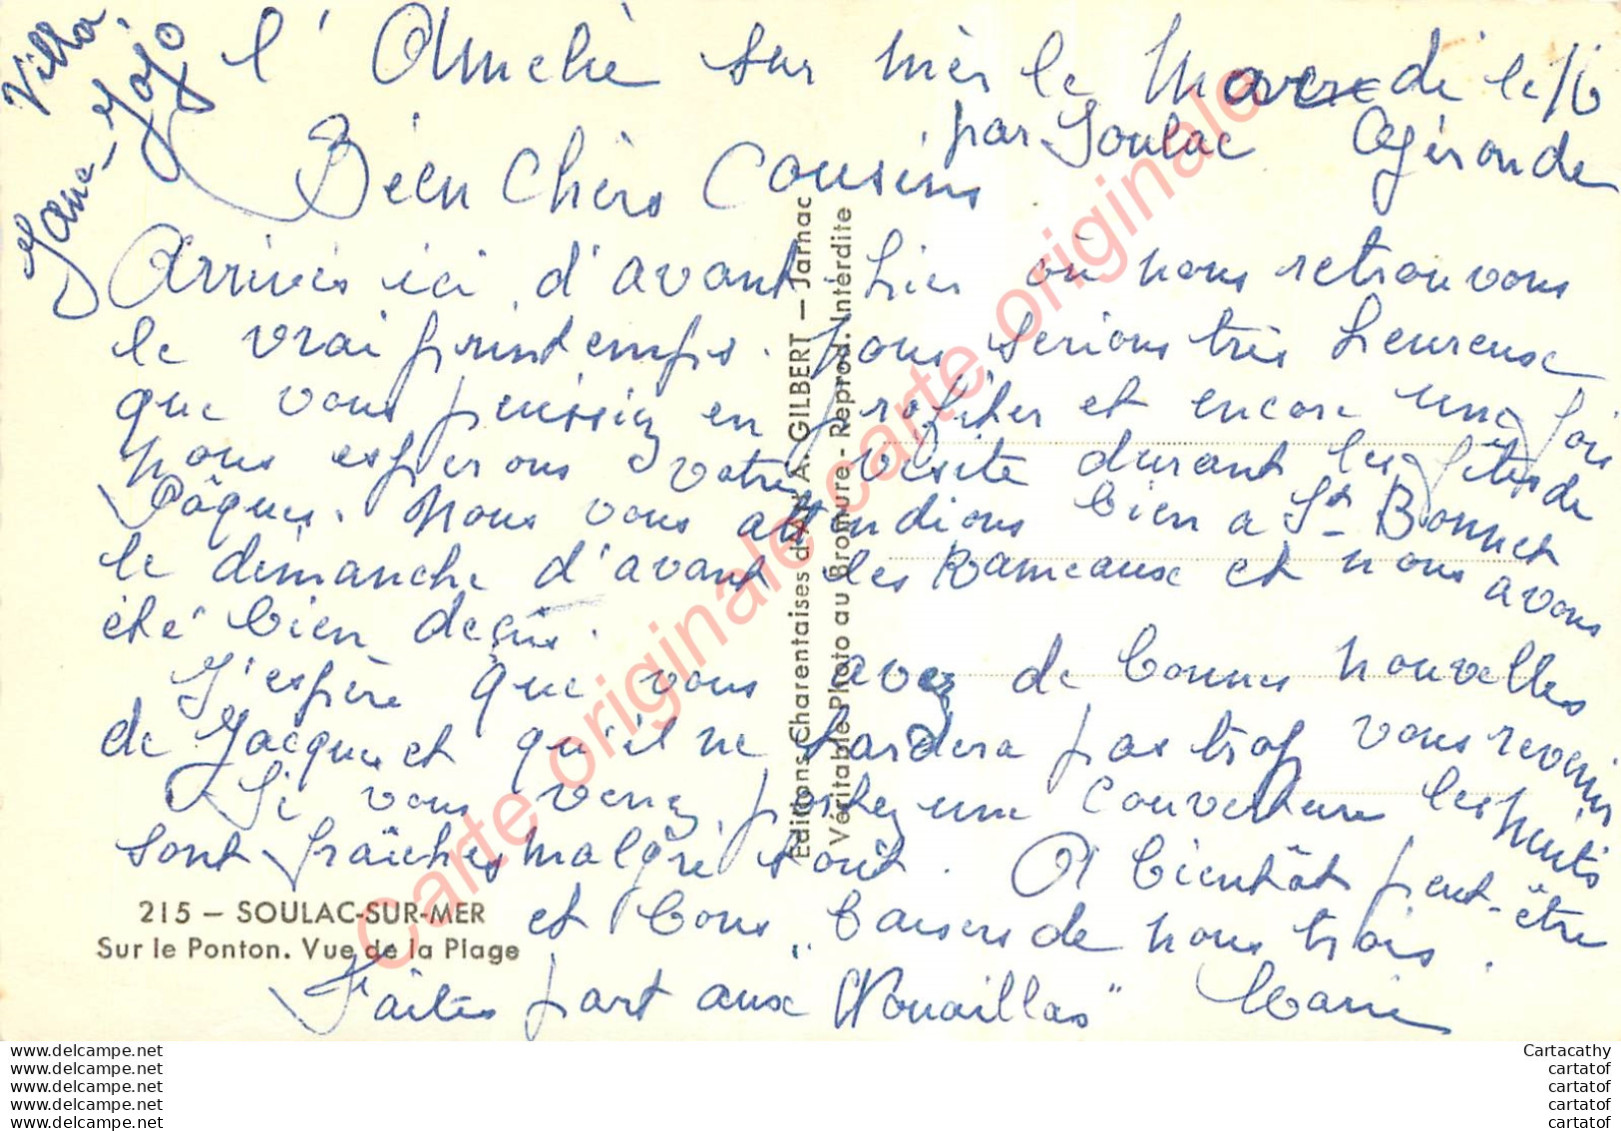 Villa
Jane-Jojo
l'Amelie sur mer le Mardi le 16
par Soulac Gironde
Bien chers Cousins
Arrivés ici d'avant hier où nous retrouvons
le vrai printemps. Nous serions très heureux
que vous puissiez en profiter et encore une fois
nous esperons votre visite durant les fêtes de
Pâques. Nous vous attendions bien a St Bonnet
le dimanche d'avant les Rameaux et nous avons
été bien deçus.
J'espère que vous avez de bonnes nouvelles
de Jacques et qu'il ne tardera pas trop vous revenir
Si vous venez portez une couverture les nuits
sont fraîches malgré tout. A bientôt peut-être
et bons baisers de nous trois.
Faites part aux "Nouaillas" Marie
215 – SOULAC-SUR-MER
Sur le Ponton. Vue de la Plage
Editions Charentaises d'Art A. GILBERT – Jarnac
Véritable Photo au Bromure - Reprod. Intérdite
Carte originale carte originale
www.delcampe.net
www.delcampe.net
www.delcampe.net
www.delcampe.net
www.delcampe.net
Cartacathy
cartatof
cartatof
cartatof
cartatof